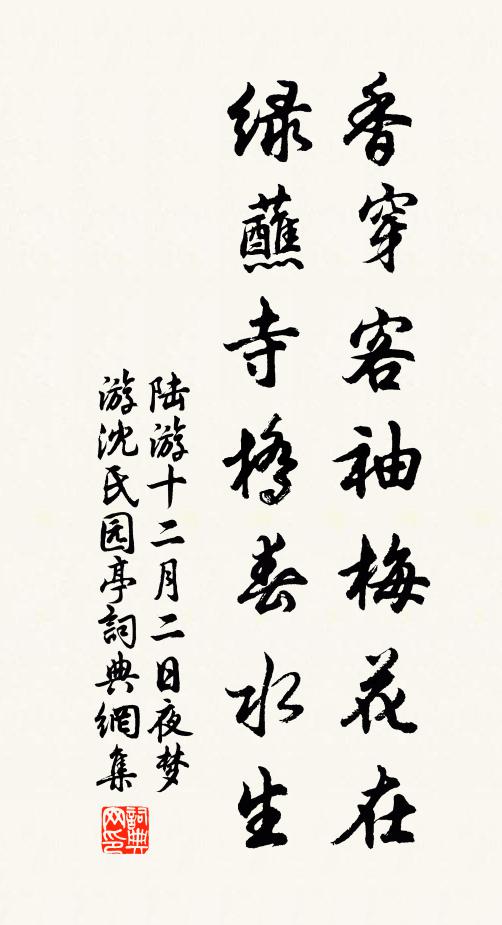 香穿客袖梅花在
绿蘸寺桥春水生
陆游十二月二日夜梦
游沈氏园亭詞典網集
詞典网印